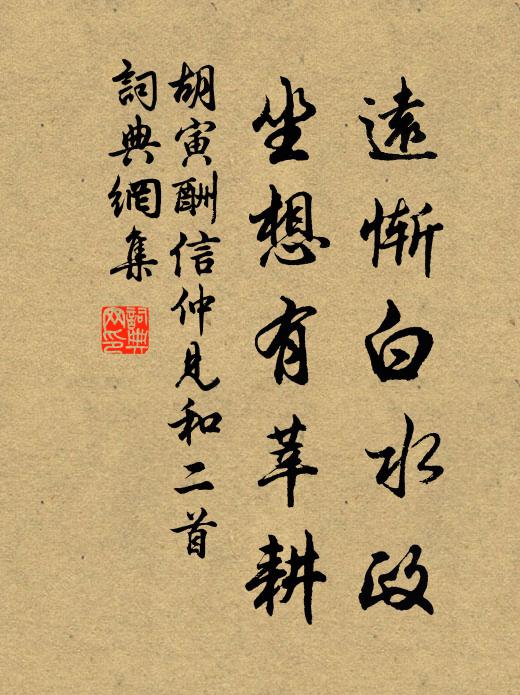 遠慚白水政
坐想有莘耕
胡寅酬信仲見和二首
詞典網集
詞典网印